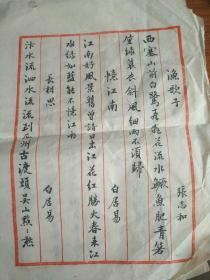 漁歌子
張志和
西塞山前白鷺飛桃花流水鳜魚肥青箬
笠绿蓑衣斜風细雨不須歸
憶江南
白居易
江南好風景舊曾諳日出江花红勝火春来江
水绿如藍能不憶江南
長相思
白居易
汴水流泗水流流到瓜州古渡頭吴山點々愁